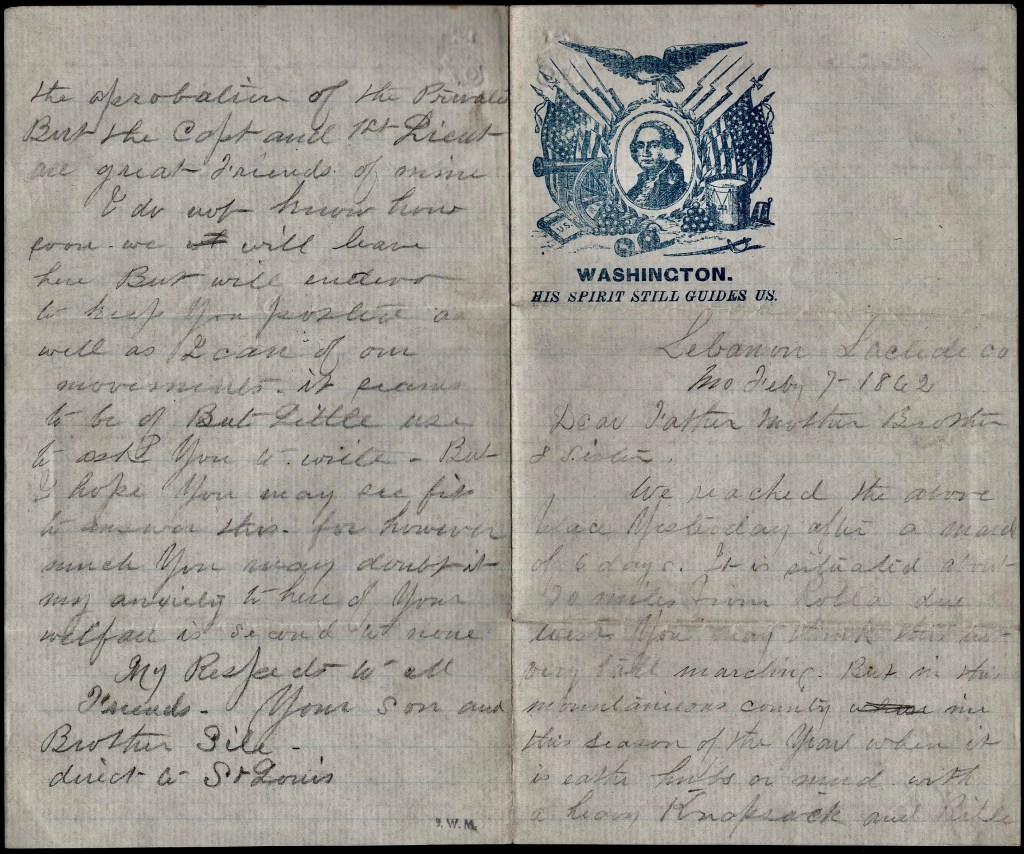 WASHINGTON.
HIS SPIRIT STILL GUIDES US.
Lebanon Laclede co
Mo Feby 7 - 1862
Dear Father Mother Brother
& Sister.
We reached the above
place Yesterday after a march
of 6 days. It is situated about
70 miles from Rolla due
west You may think this is
very tall marching. But in this
mountanious county in
this season of the Year when it
is eathe hubbs or mud with
a heavy Knapsack and Rifle
the aprobation of the Privates
But the Capt and 1st Lieut
are great Friends of mine
I do not know how
soon we will leave
here But will endevor
to keep You posted as
well as I can of our
movements. it seams
to be of But Little use
to ask You to write - But
I hope You may see fit
to answer this. for however
much You may doubt it
my anxiety to here of Your
welfare is second to none
My Respects to all
Friends - Your Son and
Brother
direct to St Louis
J. W. M.